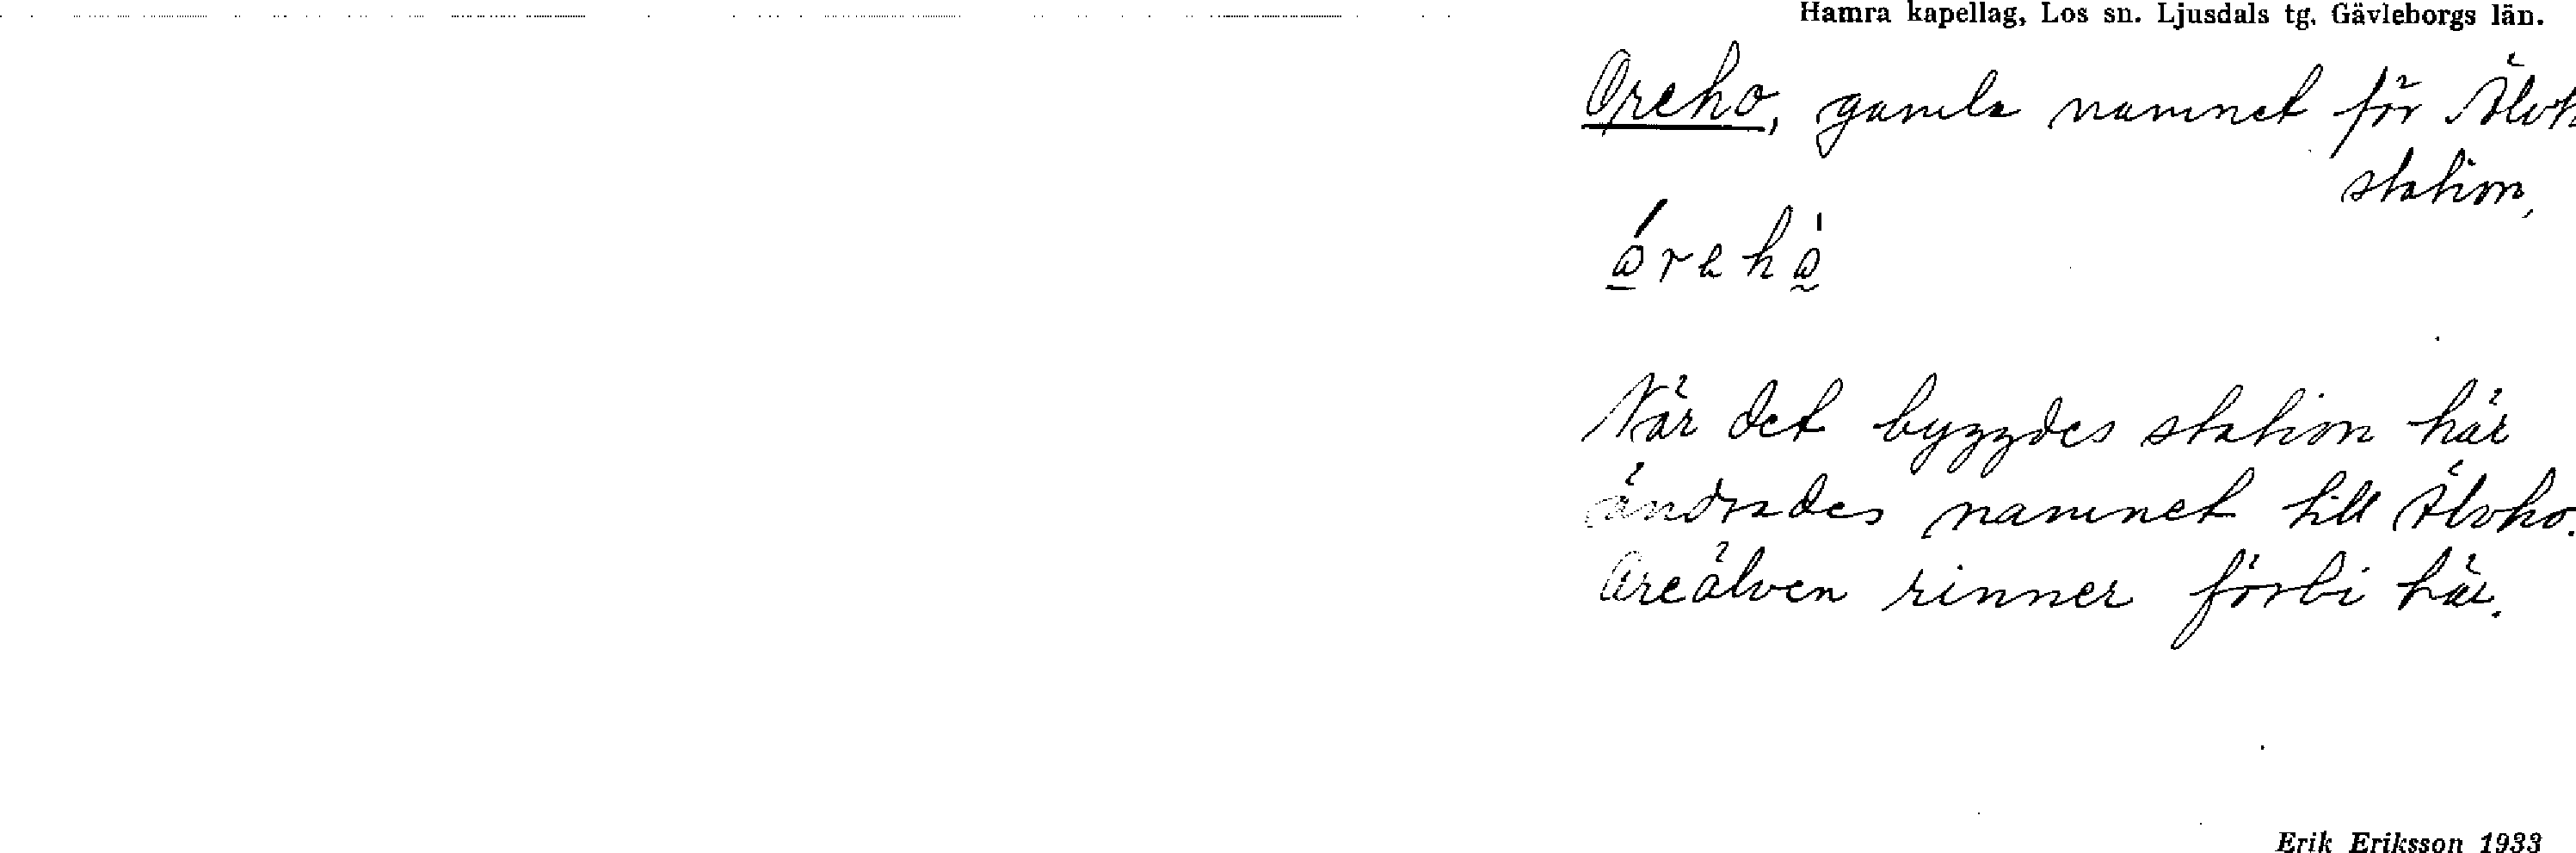 Hamra kapellag, Los sn. Ljusdals tg. Gävleborgs län.
Oreho, gamla namnet för Älvh
station,
När det byggdes station här
ändrades namnet till Älvho.
Oreälven rinner förbi här.
Erik Eriksson 1933